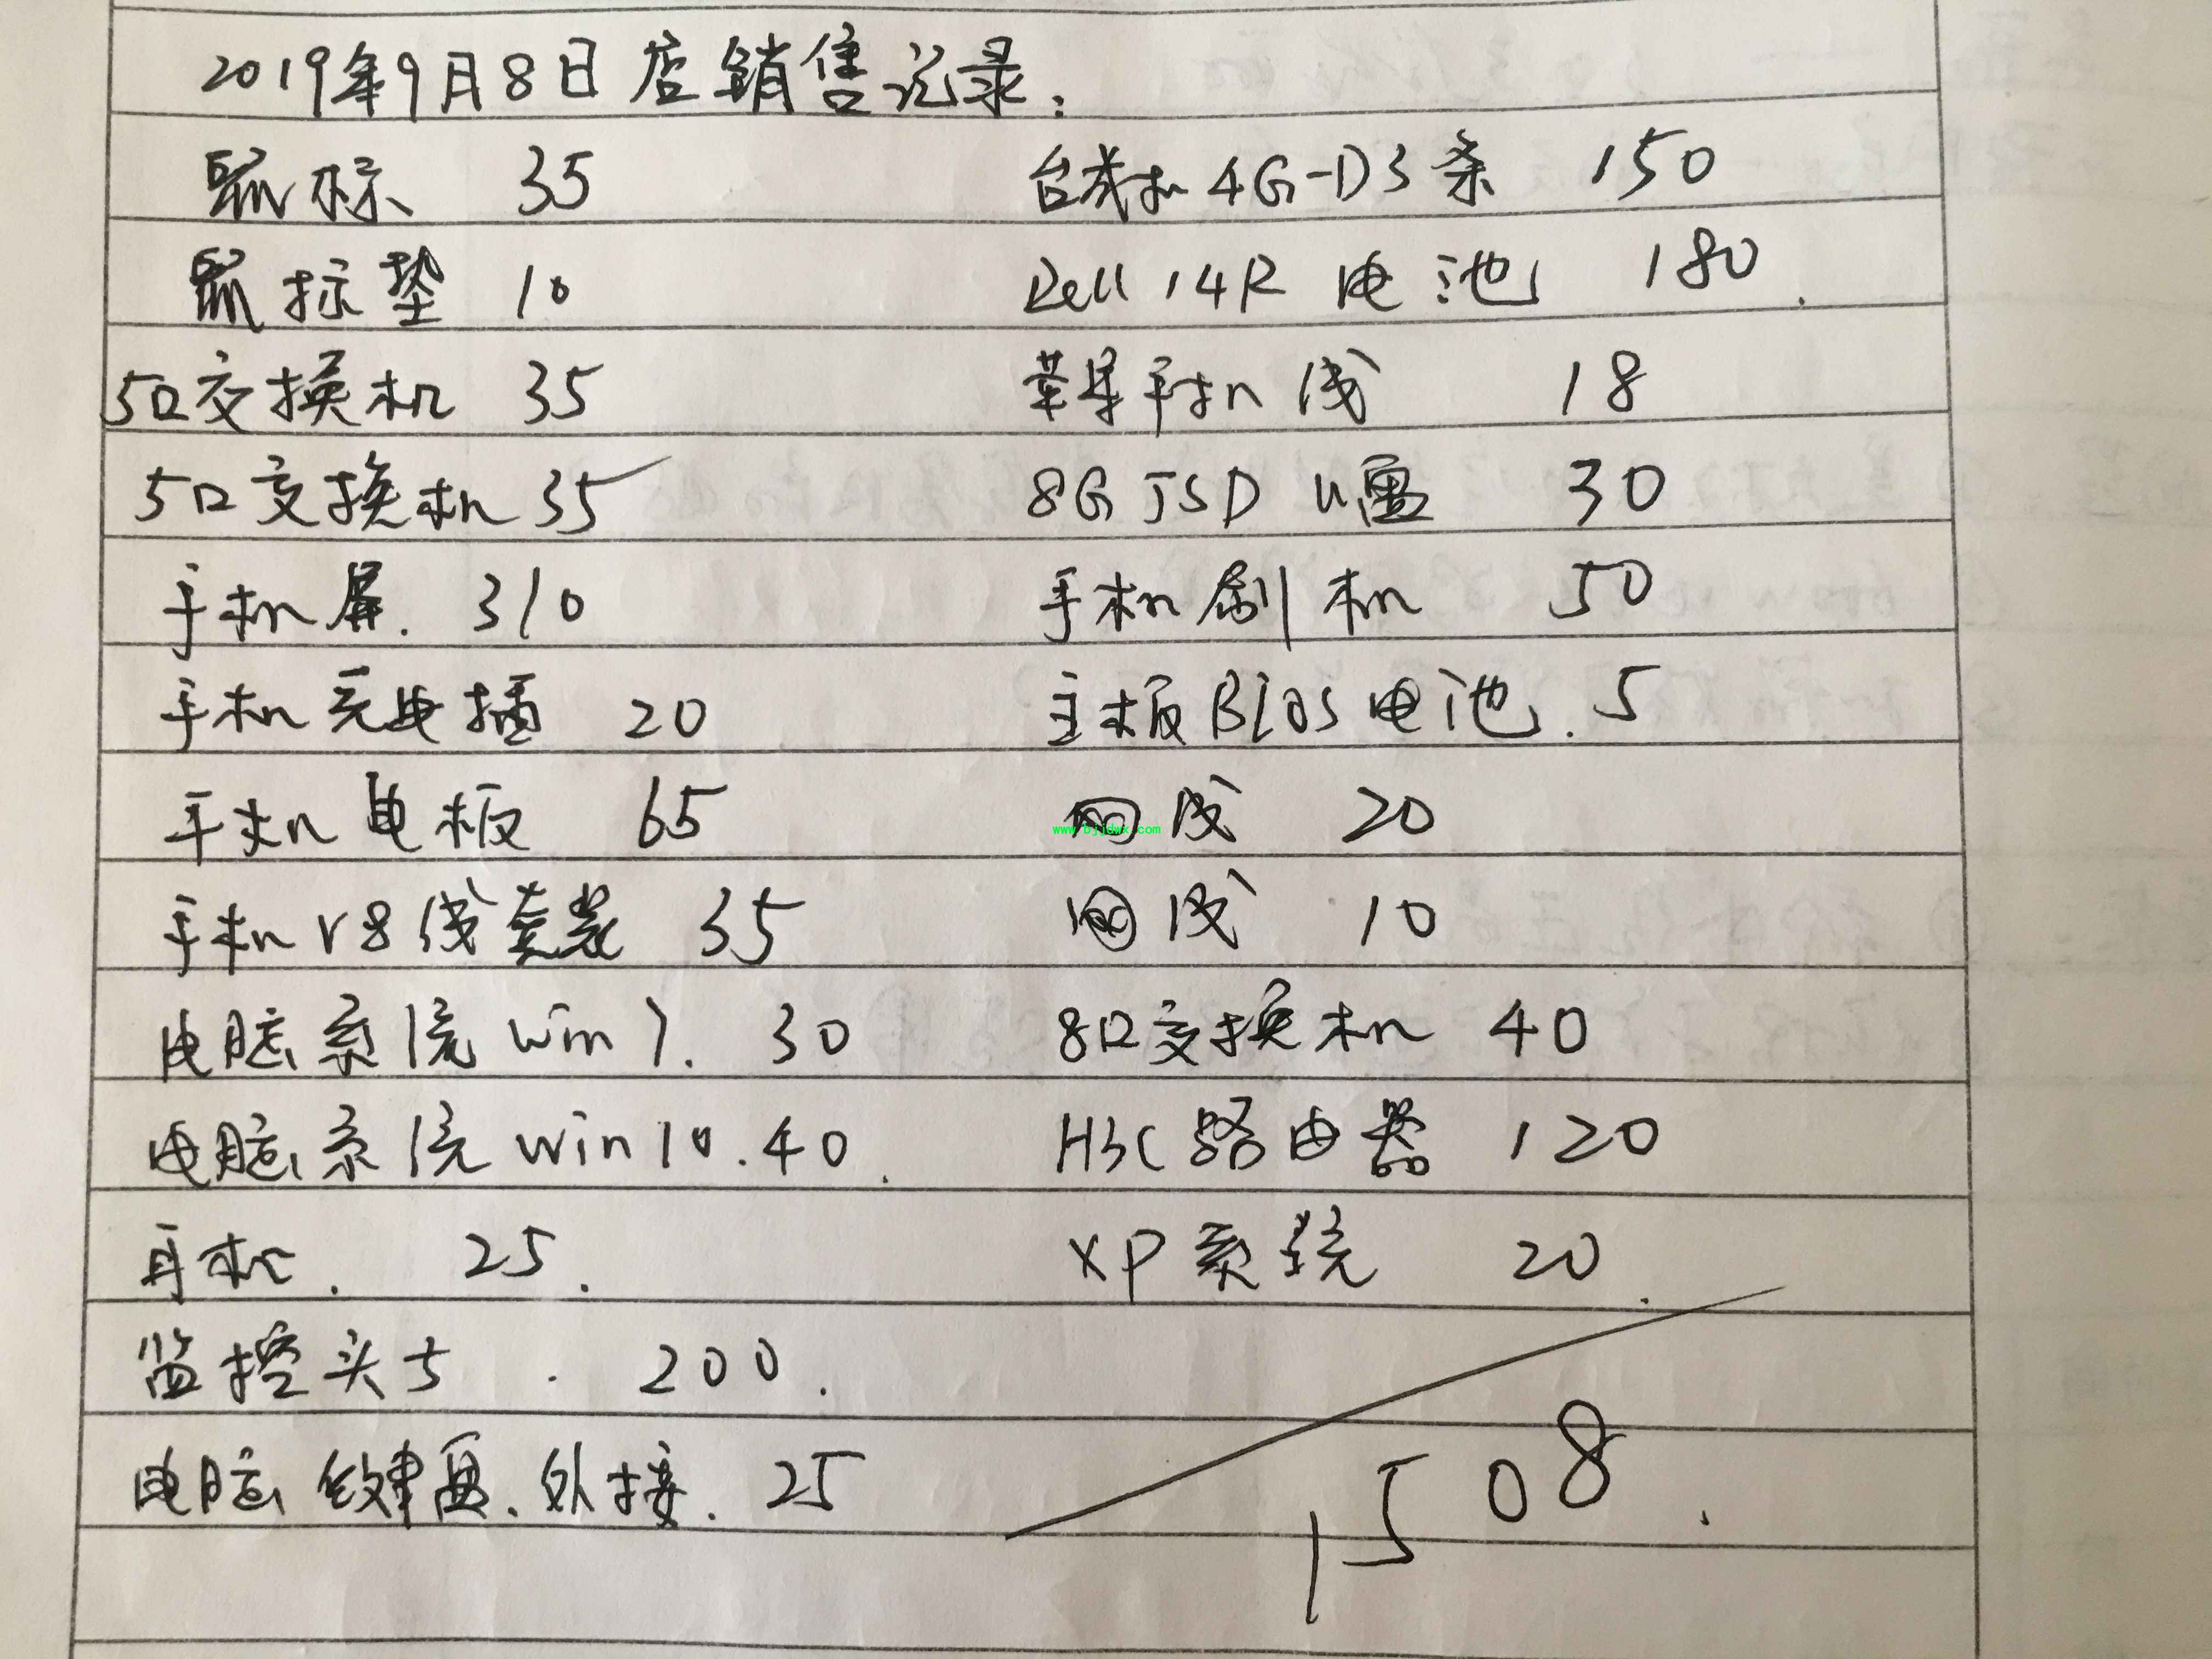 2019年9月8日店销售记录:
鼠标 35
鼠标垫 10
5口交换机 35
5口交换机 35
手机屏. 310
手机充电插 20
手机电板 65
手机V8线套装 35
电脑系统win7. 30
电脑系统win10. 40.
耳机. 25.
监控头5. 200.
电脑键盘.外接. 25
台式机4G-D3条 150
Dell 14R 电池 180.
苹果手机线 18
8G JSD U盘 30
手机刷机 50
主板BIOS电池. 5
网线 20
www.bjjdwx.com
网线 10
8口交换机 40
H3C路由器 120
XP系统 20.
1508.